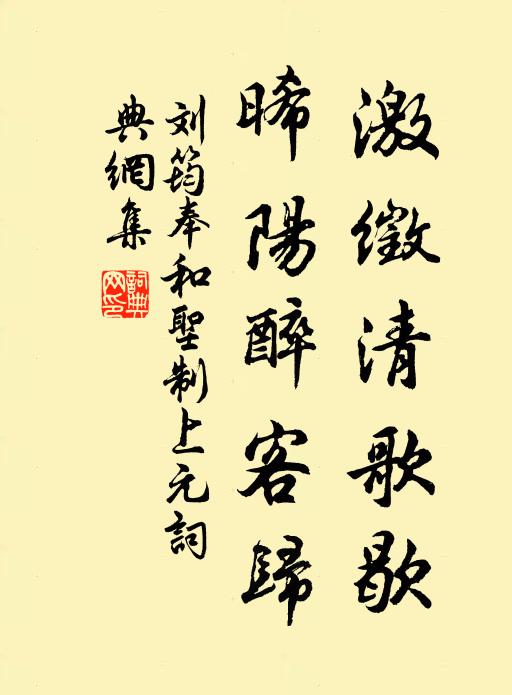 激徵清歌歇
晞陽醉客歸
刘筠奉和聖制上元詞
典網集
詞典網印